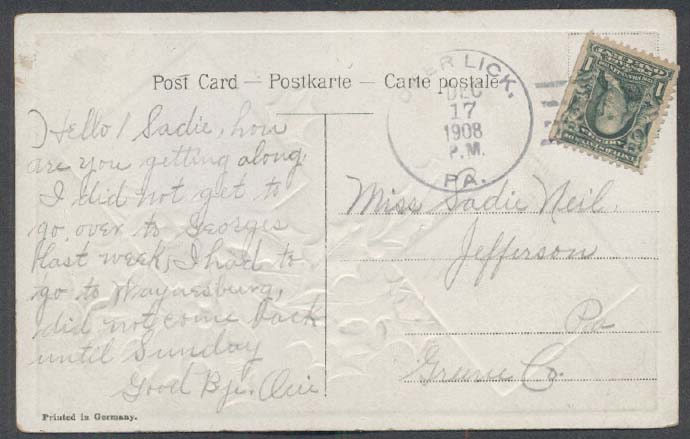 Post Card — Postkarte — Carte postale
LICK,
DEC
17
1908
P.M.
PA.
Hello! Sadie, how
are you getting along.
I did not get to
go over to Georges
last week, I had to
go to Waynesburg,
did not come back
until Sunday
Good Bye.
Miss Sadie Neil.
Jefferson
Pa
Greene Co.
Printed in Germany.